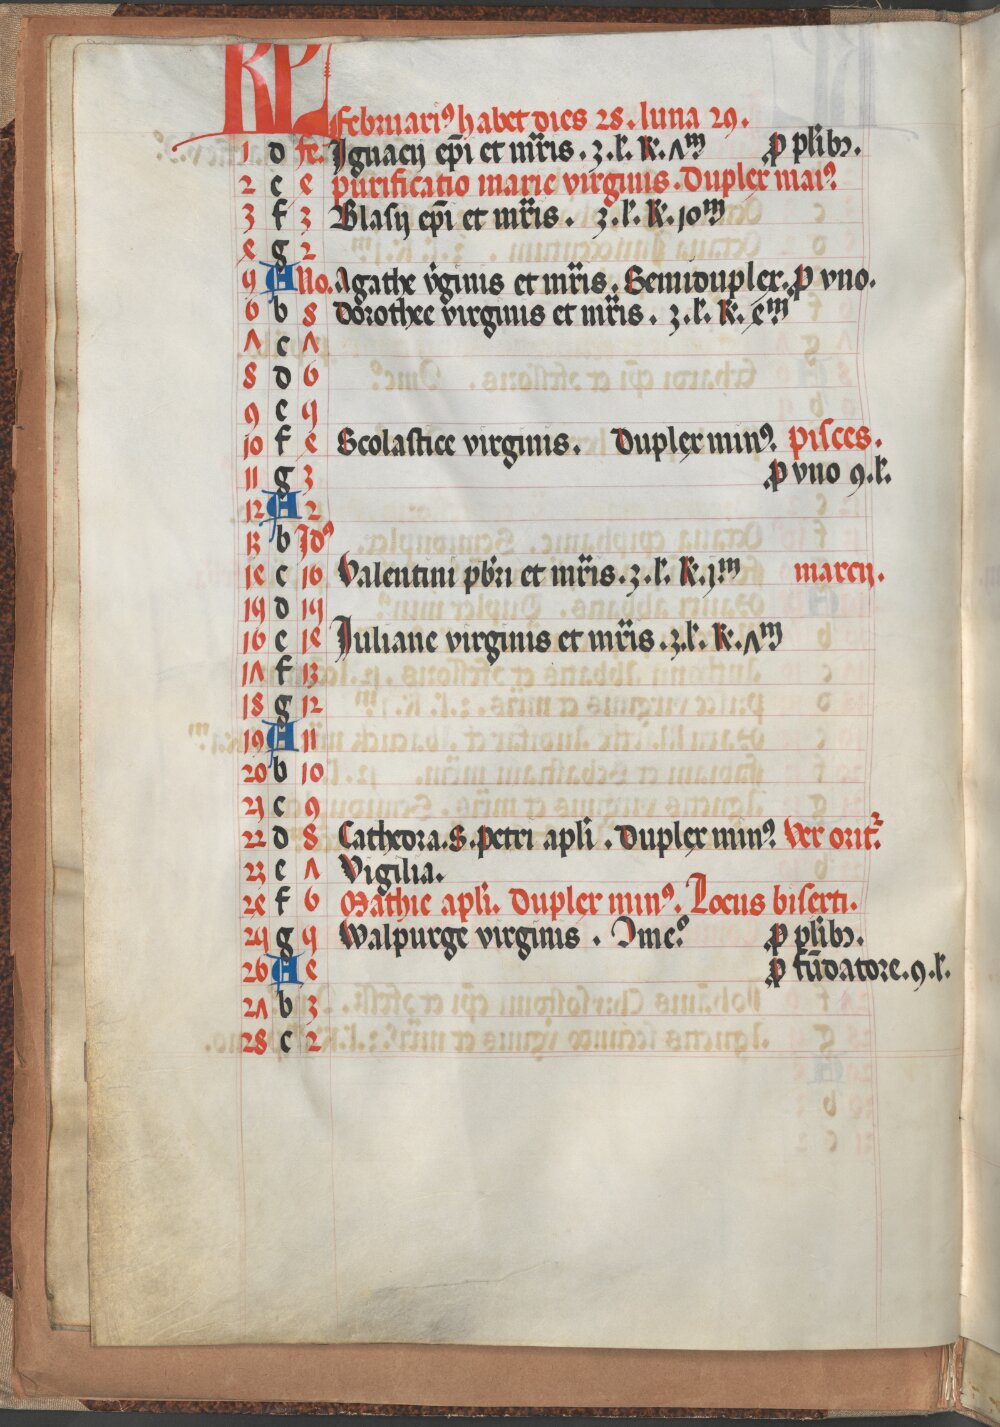 KL
februari⁹ habet dies 28. luna 29.
1 d fe. Ignacij ep̄i et mr̄is. 3. l'. K. 7ᵐ p̱ plib⁹.
2 e 4 purificatio marie virginis. Dupler mai⁹
3 f 3 Blasij ep̄i et mr̄is. 3. l'. K. 10ᵐ
4 g 2
5 A No. Agathe v̄ginis et mr̄is. Semidupler. p̱ vno.
6 b 8 dorothee virginis et mr̄is. 3. l'. K. 4ᵐ
7 c 7
8 d 6
9 e 5
10 f 4 Scolastice virginis. Dupler min⁹. pisces.
11 g 3 p̱ vno 9. l'.
12 A 2
13 b Id⁹
14 c 16 Valentini pb̄ri et mr̄is. 3. l'. K. 1ᵐ marcij.
15 d 15
16 e 14 Juliane virginis et mr̄is. 3. l'. K. 7ᵐ
17 f 13
18 g 12
19 A 11
20 b 10
21 c 9
22 d 8 Cathedra. S. petri apl̄i. Dupler min⁹. Ver orit᷑.
23 e 7 Vigilia.
24 f 6 Mathie apl̄i. Dupler min⁹. Locus biserti.
25 g 5 Walpurge virginis. Ime⁹. p̱ plib⁹.
26 A 4 p̱ fūdatore. 9. l'.
27 b 3
28 c 2